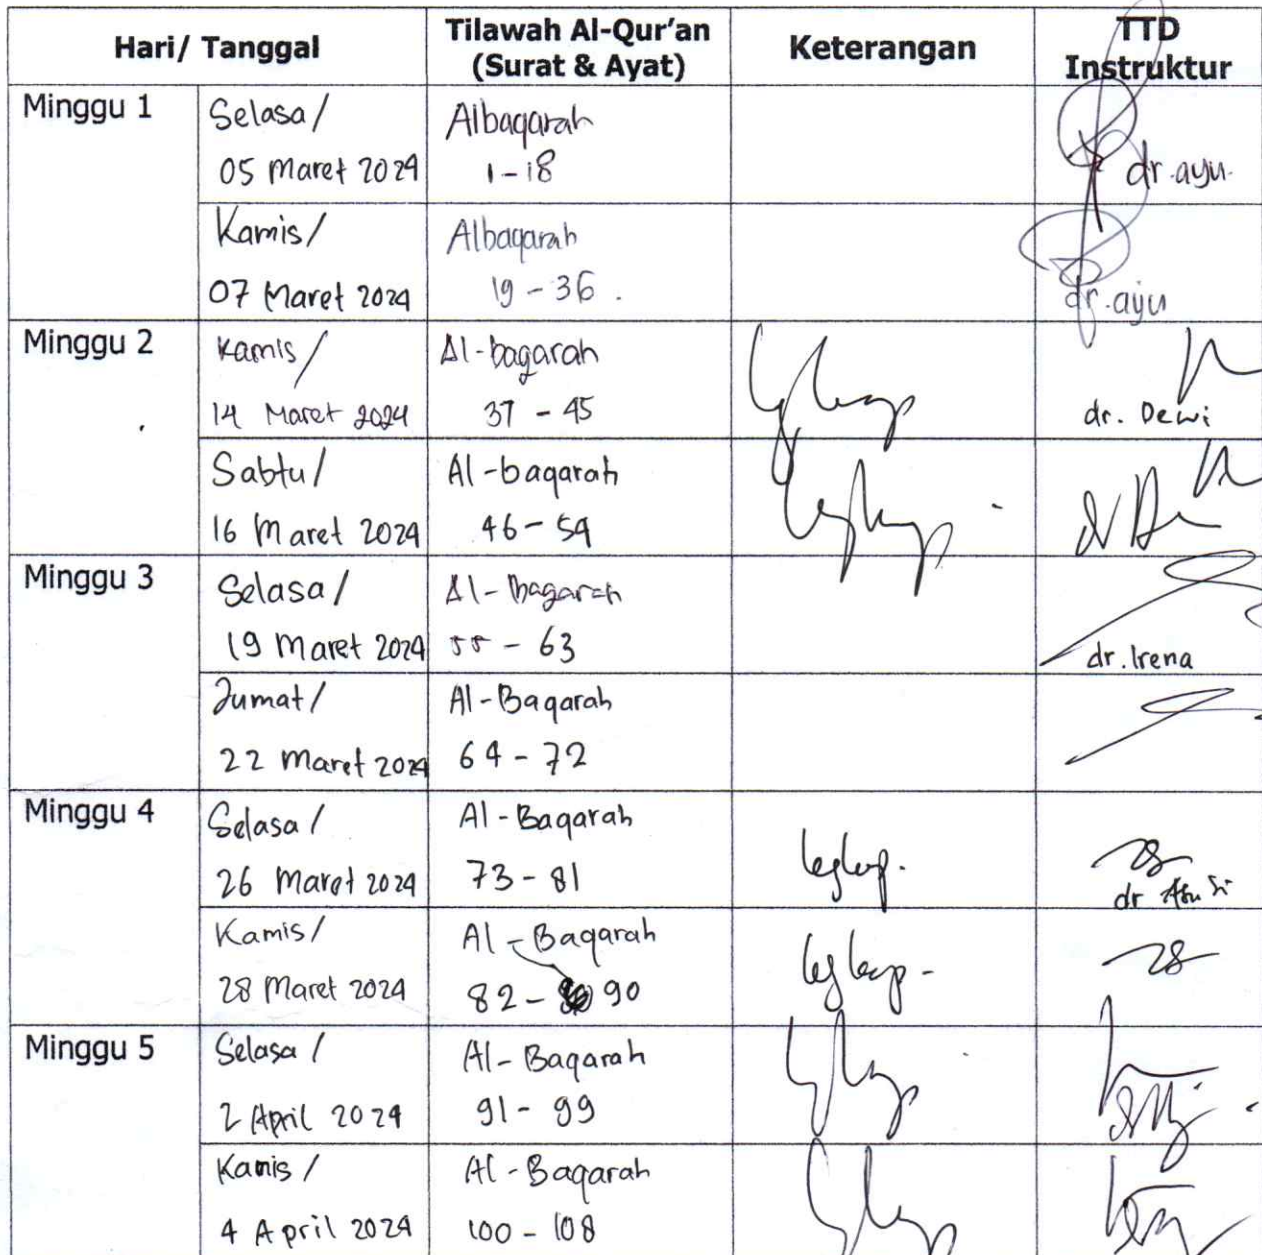 Hari/ Tanggal
Tilawah Al-Qur'an
(Surat & Ayat)
Keterangan
TTD
Instruktur
Minggu 1
Selasa/
05 Maret 2024
Albaqarah
1-18
dr.ayu
Kamis/
07 Maret 2024
Albaqarah
19-36.
dr.ayu
Minggu 2
Kamis/
14 Maret 2024
Al-baqarah
37 - 45
dr. Dewi
Sabtu/
16 Maret 2024
Al-baqarah
46-54
Minggu 3
Selasa/
19 Maret 2024
Al-Baqarah
55 - 63
dr.Irena
Jumat/
22 Maret 2024
Al-Baqarah
64-72
Minggu 4
Selasa/
26 Maret 2024
Al-Baqarah
73-81
lengkap.
dr
Kamis/
28 Maret 2024
Al-Baqarah
82- 90
lengkap-
Minggu 5
Selasa/
2 April 2024
Al-Baqarah
91- 99
Kamis/
4 April 2024
Al-Baqarah
100 - 108